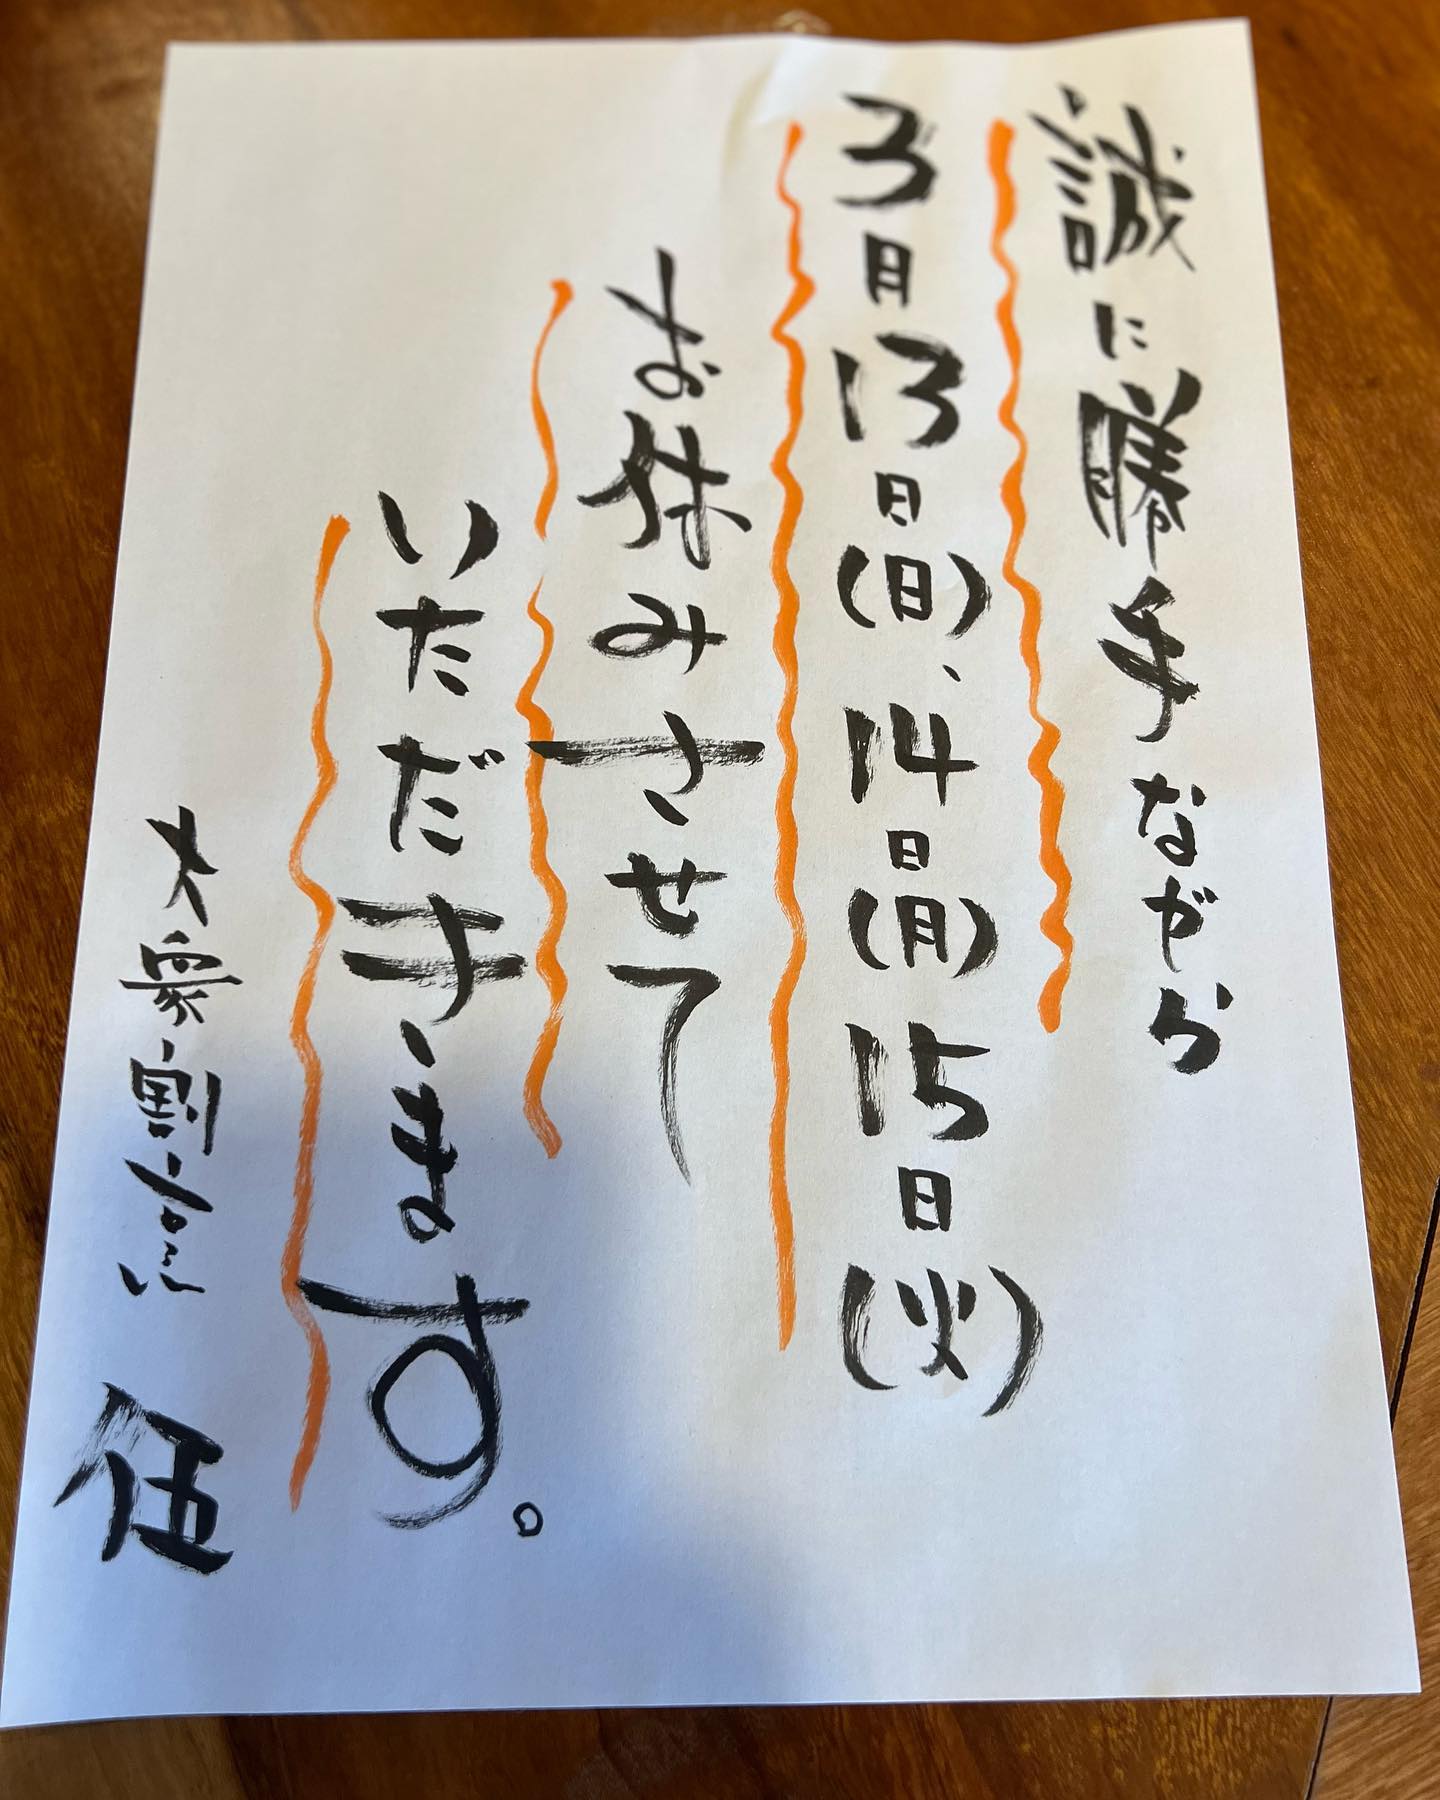 誠に勝手ながら
3月13日(日)、14日(月)15日(火)
お休みさせて
いただきます。
大衆割烹 伍